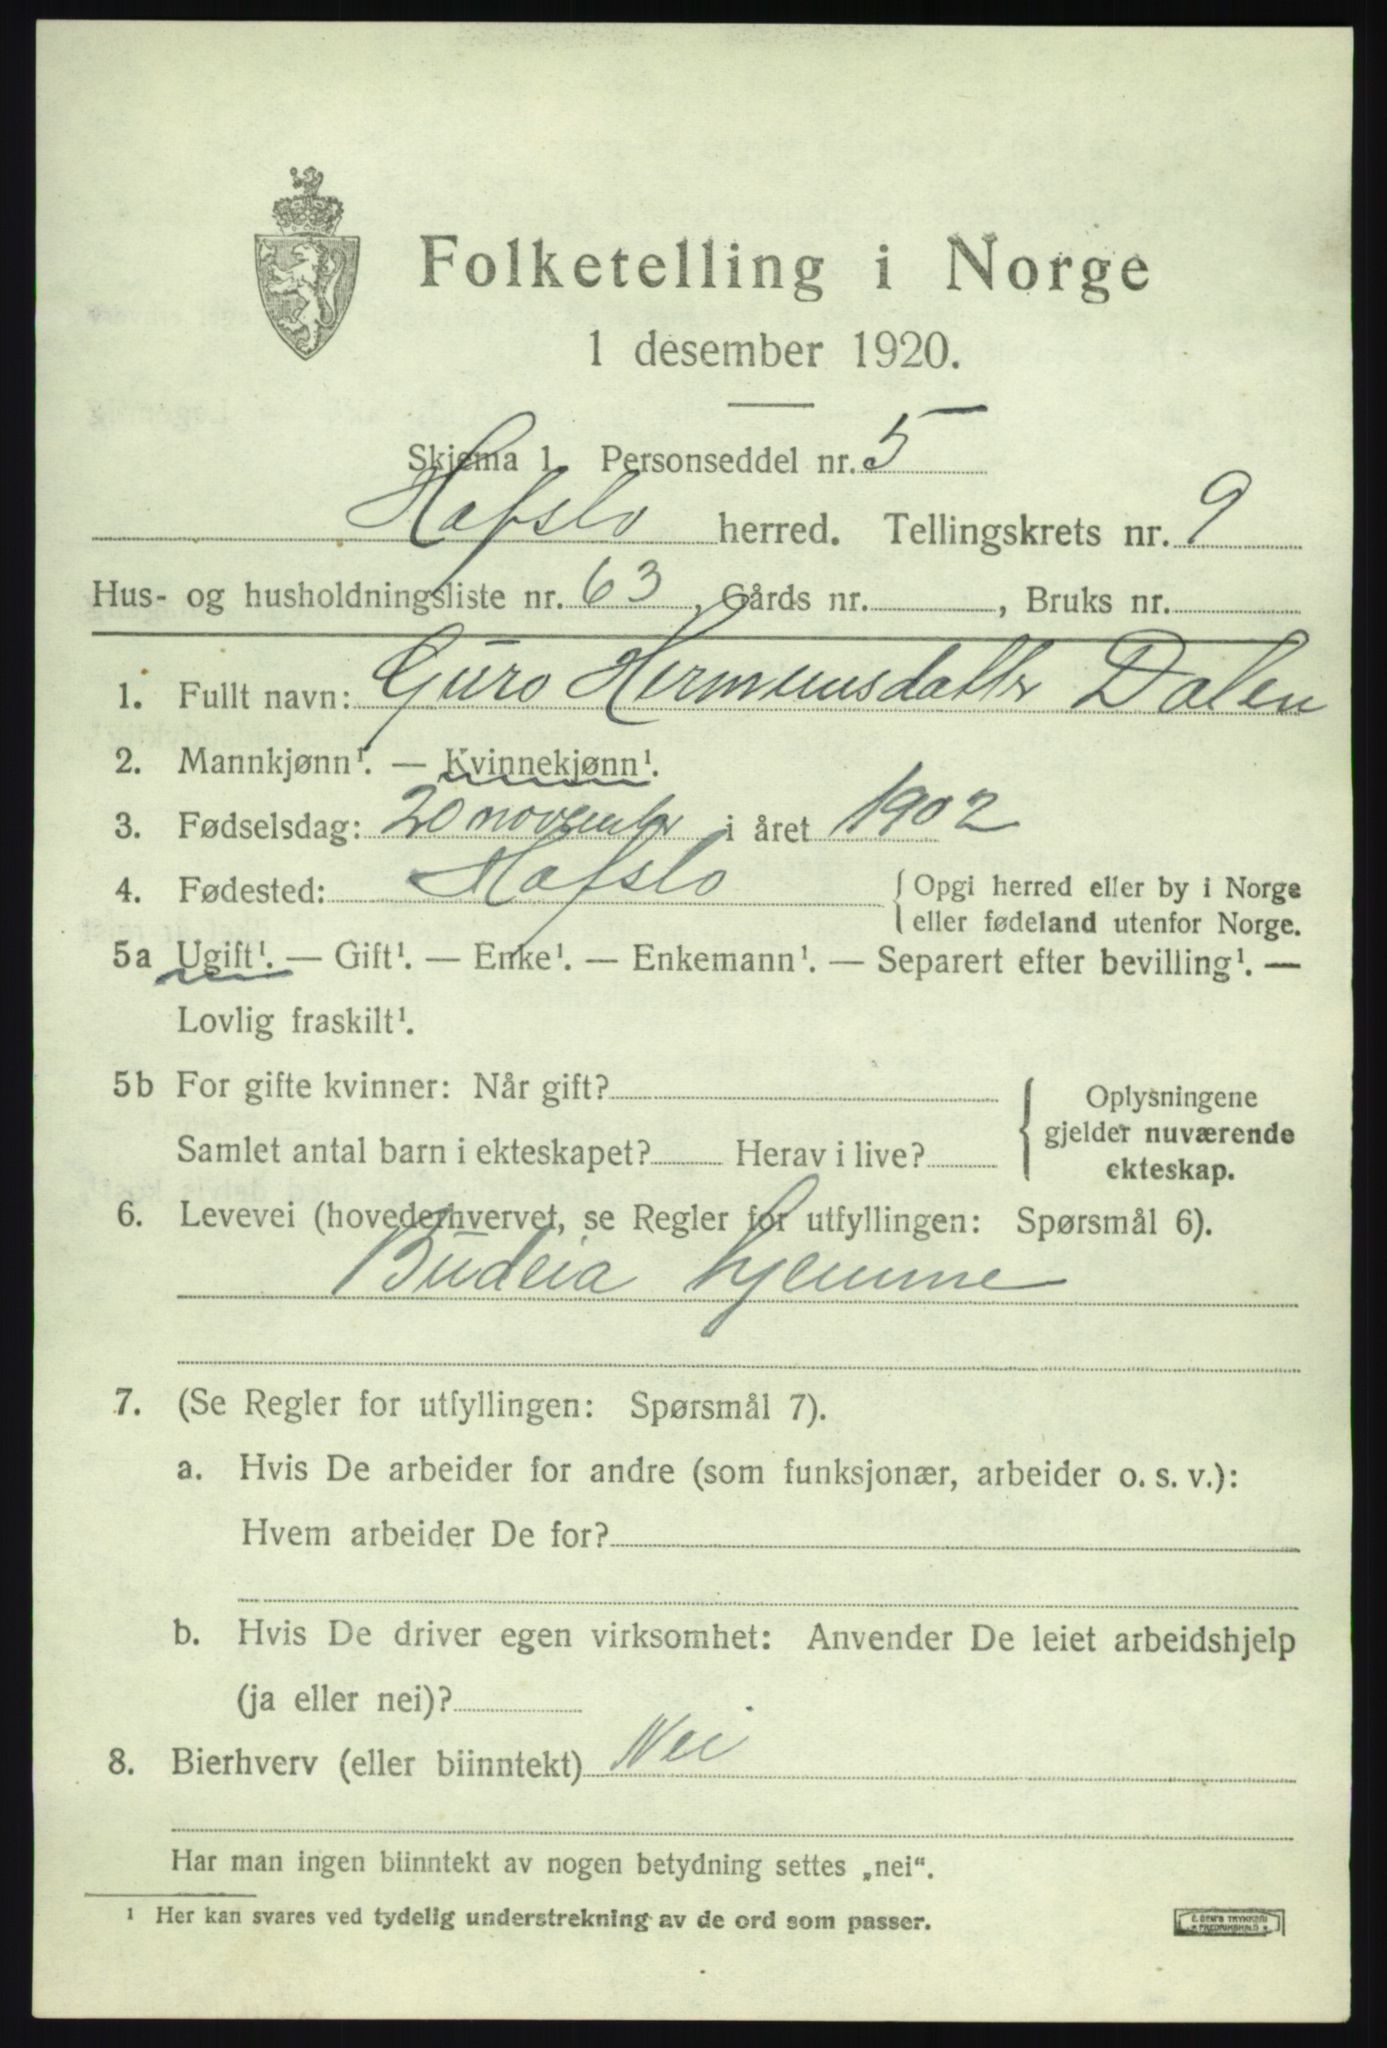 Folketelling i Norge
1 desember 1920.
Skjema 1. Personseddel nr. 5
Hafslo herred. Tellingskrets nr. 9
Hus- og husholdningsliste nr. 63, Gårds nr. , Bruks nr.
1. Fullt navn: Guro Hermundsdatter Dalen
2. Mannkjønn¹. — Kvinnekjønn¹.
3. Fødselsdag: 20 november i året 1902
4. Fødested: Hafslo { Opgi herred eller by i Norge
eller fødeland utenfor Norge.
5a Ugift¹. — Gift¹. — Enke¹. — Enkemann¹. — Separert efter bevilling¹. —
Lovlig fraskilt¹.
5b For gifte kvinner: Når gift?
Samlet antal barn i ekteskapet? Herav i live?
Oplysningene
gjelder nuværende
ekteskap.
6. Levevei (hovederhvervet, se Regler for utfyllingen: Spørsmål 6).
Budeia hjemme
7. (Se Regler for utfyllingen: Spørsmål 7).
a. Hvis De arbeider for andre (som funksjonær, arbeider o. s. v.):
Hvem arbeider De for?
b. Hvis De driver egen virksomhet: Anvender De leiet arbeidshjelp
(ja eller nei)?
8. Bierhverv (eller biinntekt) Nei
Har man ingen biinntekt av nogen betydning settes „nei".
¹ Her kan svares ved tydelig understrekning av de ord som passer.
E. SEM'S TRYKKERI
FREDRIKSHALD